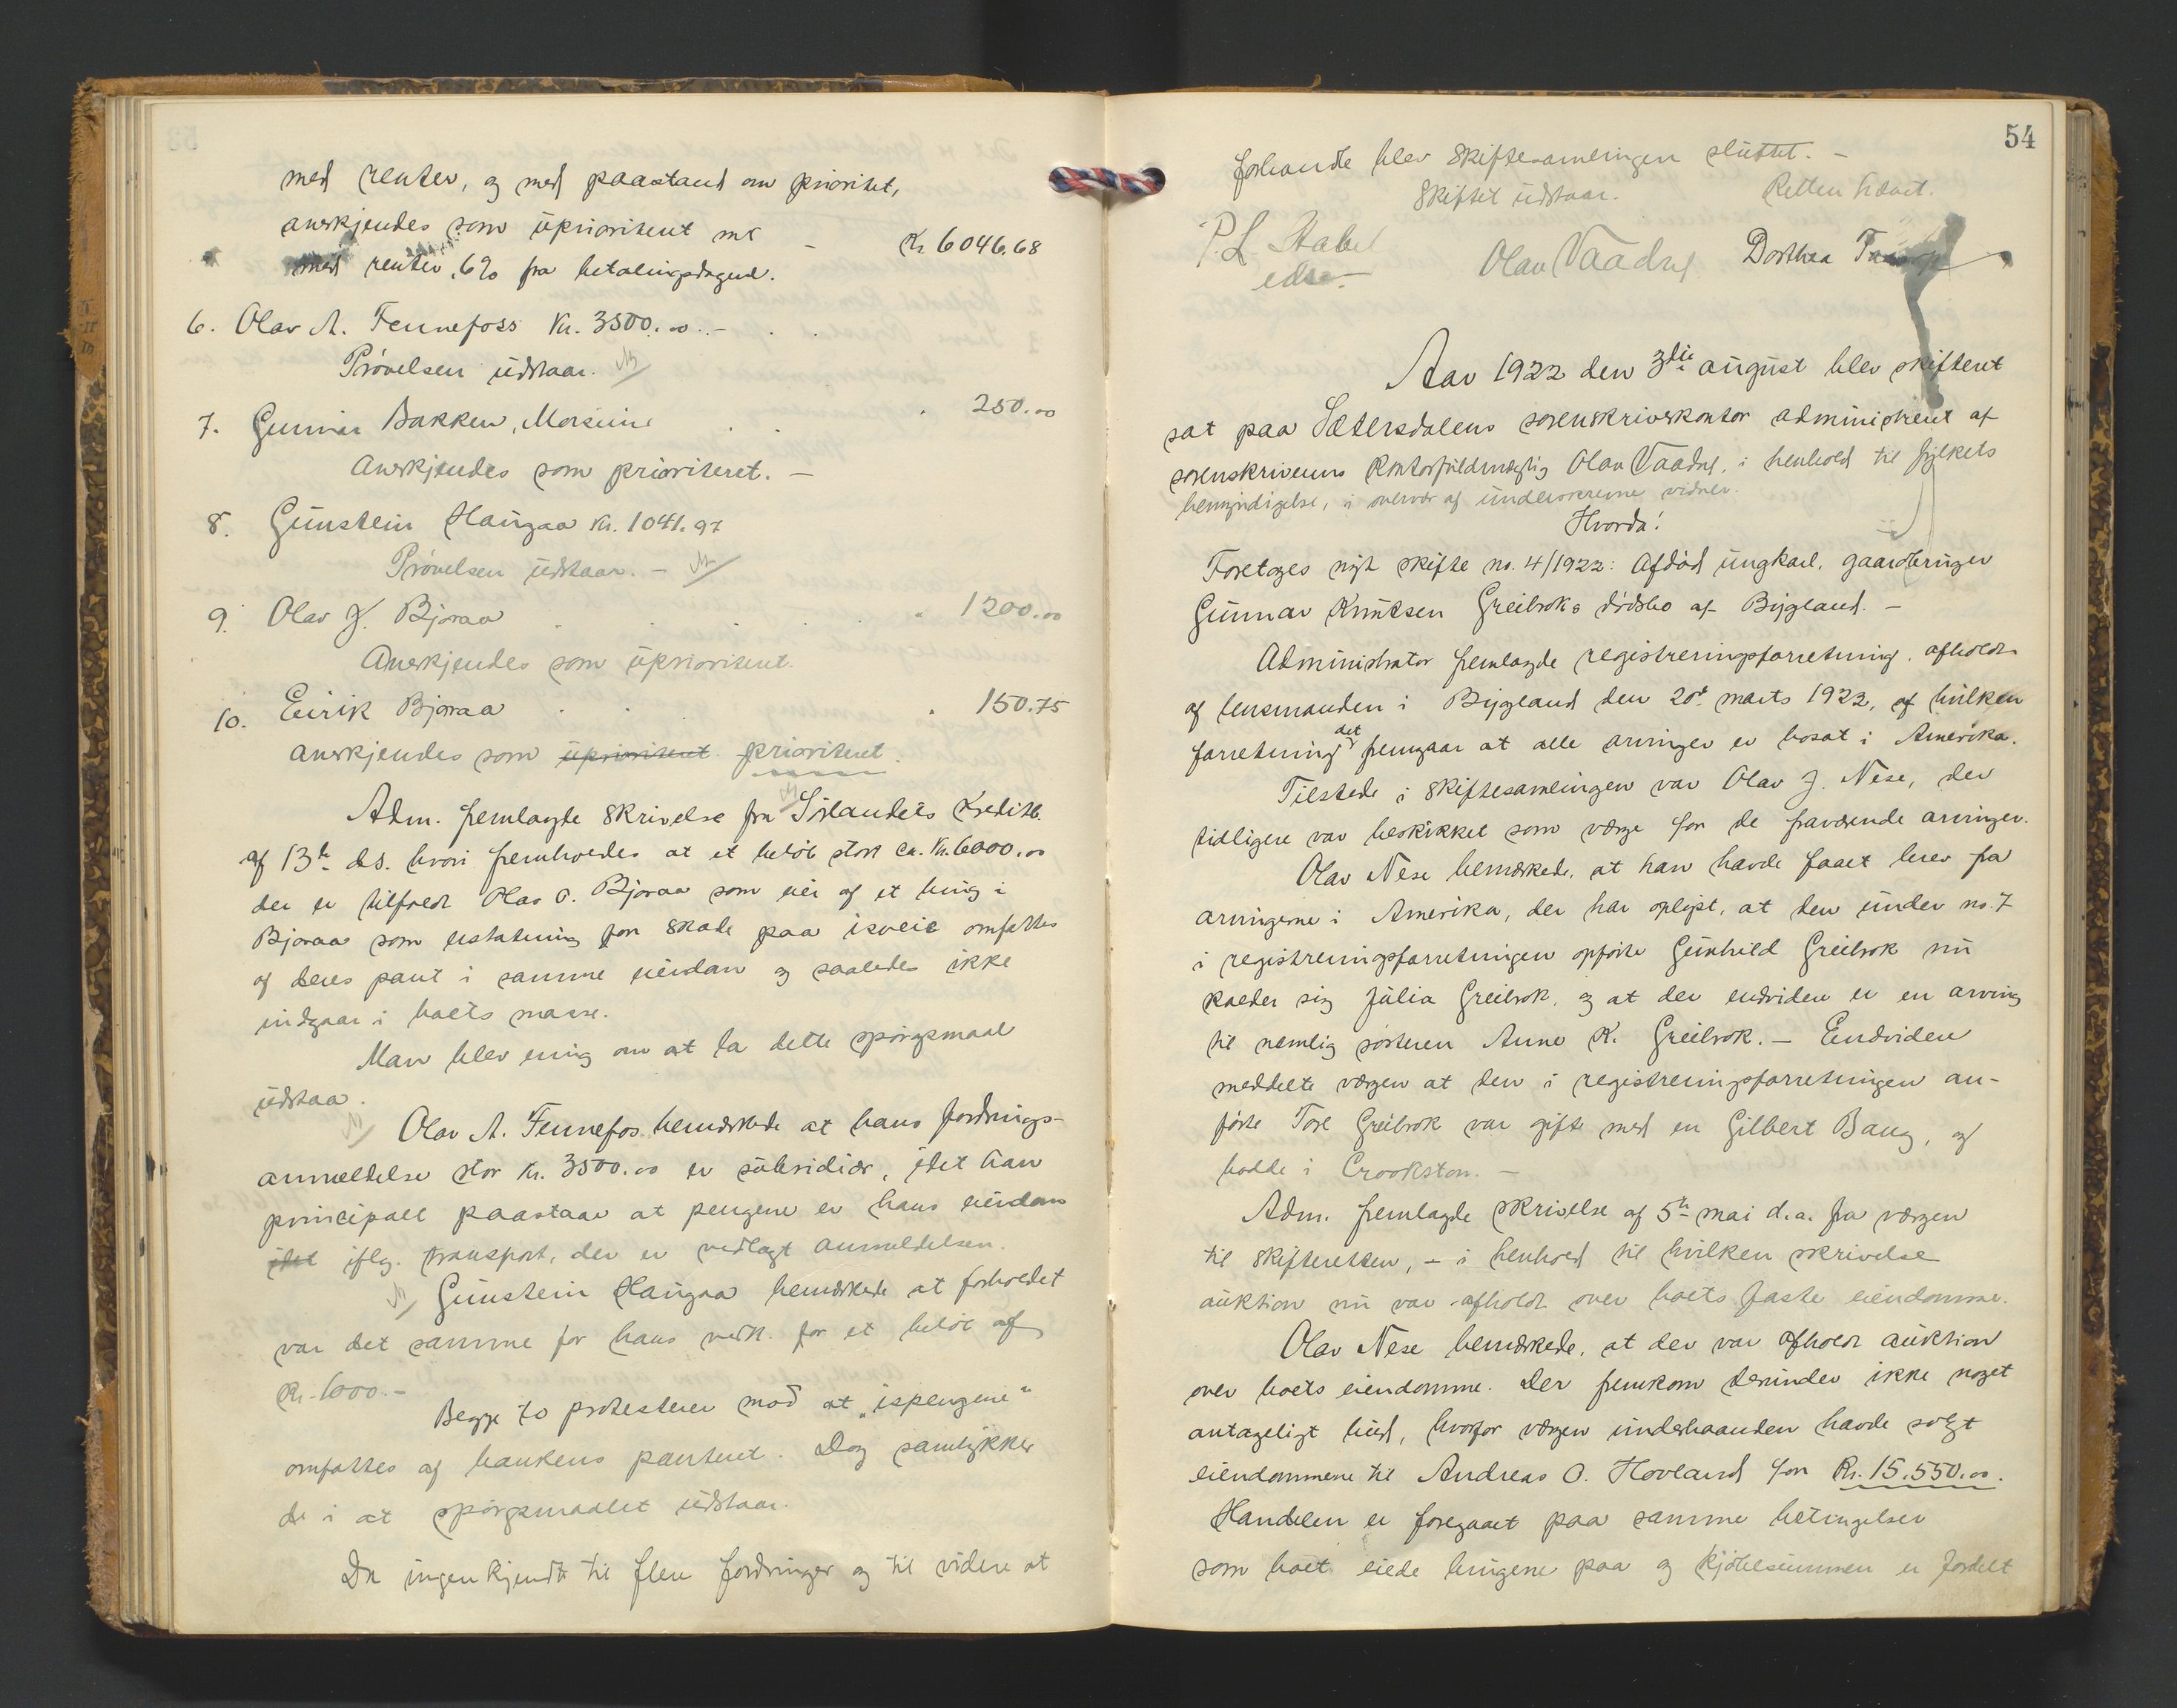 med renter, og med paastand om prioritet,
anerkjendes som uprioritert m/ - Kr. 6046,68
med renter 6% fra betalingsdagen.
6. Olav A. Fennefoss Kr. 3500.00 -
Prøvelsen utstaar.
7. Gunnar Bakken, Moseim . 250.00
Anerkjendes som prioriteret. -
8. Gunstein Haugaa Kr. 1041.97
Prøvelsen utstaar. -
9. Olav J. Bjoraa . 1200.00
Anerkjendes som uprioritert.
10. Eirik Bjoraa . 150.75
anerkjendes som uprioritert prioritert.
Adm. fremlagde skrivelse fra Sørlandets Kreditb.
af 13de ds. hvori fremholdes at et beløb stort ca. Kr. 6000.00
der er tilfaldt Olav O. Bjoraa som eier af et bruk i
Bjoraa som erstatning for skade paa isveie omfattes
af deres pant i samme eiendom og saaledes ikke
indgaar i boets masse.
Man blev enig om at la dette spørgsmaal
utstaa.
Olav A. Fennefos bemerkede at hans fordrings-
anmeldelse stor kr. 3500.00 er subsidiær, idet han
principalt paastaar at pengene er hans eiendom
idet iflg. transport, der er vedlagt anmeldelsen.
Gunstein Haugaa bemerkede at forholdet
var det samme for hans vedk. for et beløb af
Kr. 1000.-
Begge to protesterer mod at "ispengene"
omfattes af bankens panteret. Dog samtykker
de i at spørgsmaalet utstaar.
Da ingen kjendte til flere fordringer og til videre at
54
forhandle blev skiftesamlingen sluttet. -
Skiftet utstaar. Retten hævet.
P. L. Stabel
edsv.
Olav Vaadny Dorthea
Aar 1922 den 3die august blev skifteret
sat paa Sætersdalens sorenskriverkontor administrert af
sorenskriverens kontorfuldmægtig Olav Vaadny, i henhold til fylkets
bemyndigelse, i overvær af underskrevne vidner.
Hvorda!
Foretages nyt skifte no. 4/1922: Afdød ungkarl, gaardbruger
Gunnar Knutsen Greibroks dødsbo af Bygland. -
Administrator fremlagde registreringsforretning, afholdt
af lensmanden i Bygland den 20de marts 1922, af hvilken
forretning det fremgaar at alle arvinger er bosat i Amerika.
Tilstede i skiftesamlingen var Olav J. Nese, der
tidligere var beskikket som verge for de fraværende arvinger.
Olav Nese bemerkede, at han havde faaet brev fra
arvingerne i Amerika, der har oplyst, at den under no. 7
i registreringsforretningen opførte Gunhild Greibrok nu
kalder sig Julia Greibrok, og at der endvidere er en arving
til nemlig søsteren Anne K. Greibrok. - Endvidere
meddelte vergen at den i registreringsforretningen an-
førte Tore Greibrok var gift med en Gilbert Baug, og
bodde i Crookston. -
Adm. fremlagde skrivelse af 5te mai d.a. fra vergen
til skifteretten, - i henhold til hvilken skrivelse
auktion nu var afholdt over boets faste eiendomme.
Olav Nese bemerkede, at der var afholdt auktion
over boets eiendomme. Der fremkom derunder ikke noget
antageligt bud, hvorfor vergen underhaanden havde solgt
eiendommene til Andreas O. Hovland for Kr. 15.550.00.
Handelen er foregaaet paa samme betingelser
som boet eiede brugene paa og kjøbesummen er fordelt